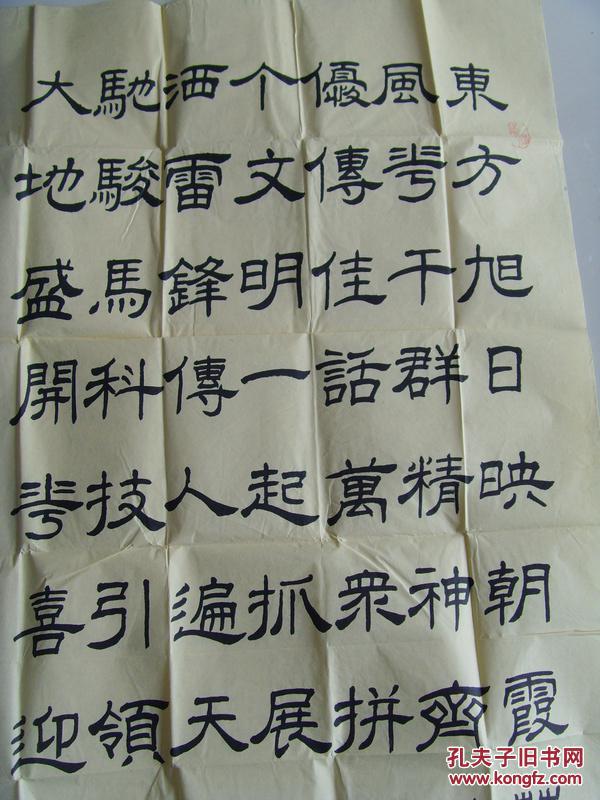 東方旭日映朝霞
風華干群精神齊
優傳佳話萬衆拼
个文明一起抓展
洒雷鋒傳人遍天
馳駿馬科技引領
大地盛開華喜迎
孔夫子旧书网
www.kongfz.com